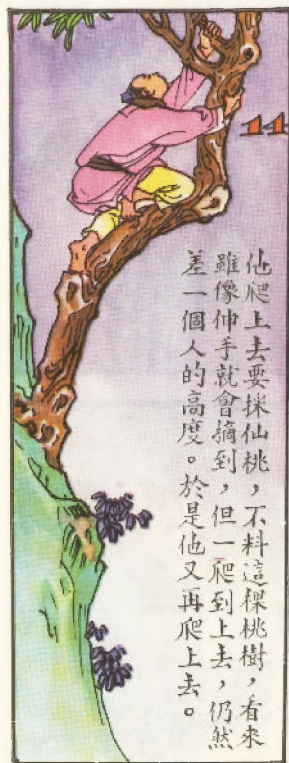 11
他爬上去要採仙桃，不料這棵桃樹，看來
雖像伸手就會摘到，但一爬到上去，仍然
差一個人的高度。於是他又再爬上去。